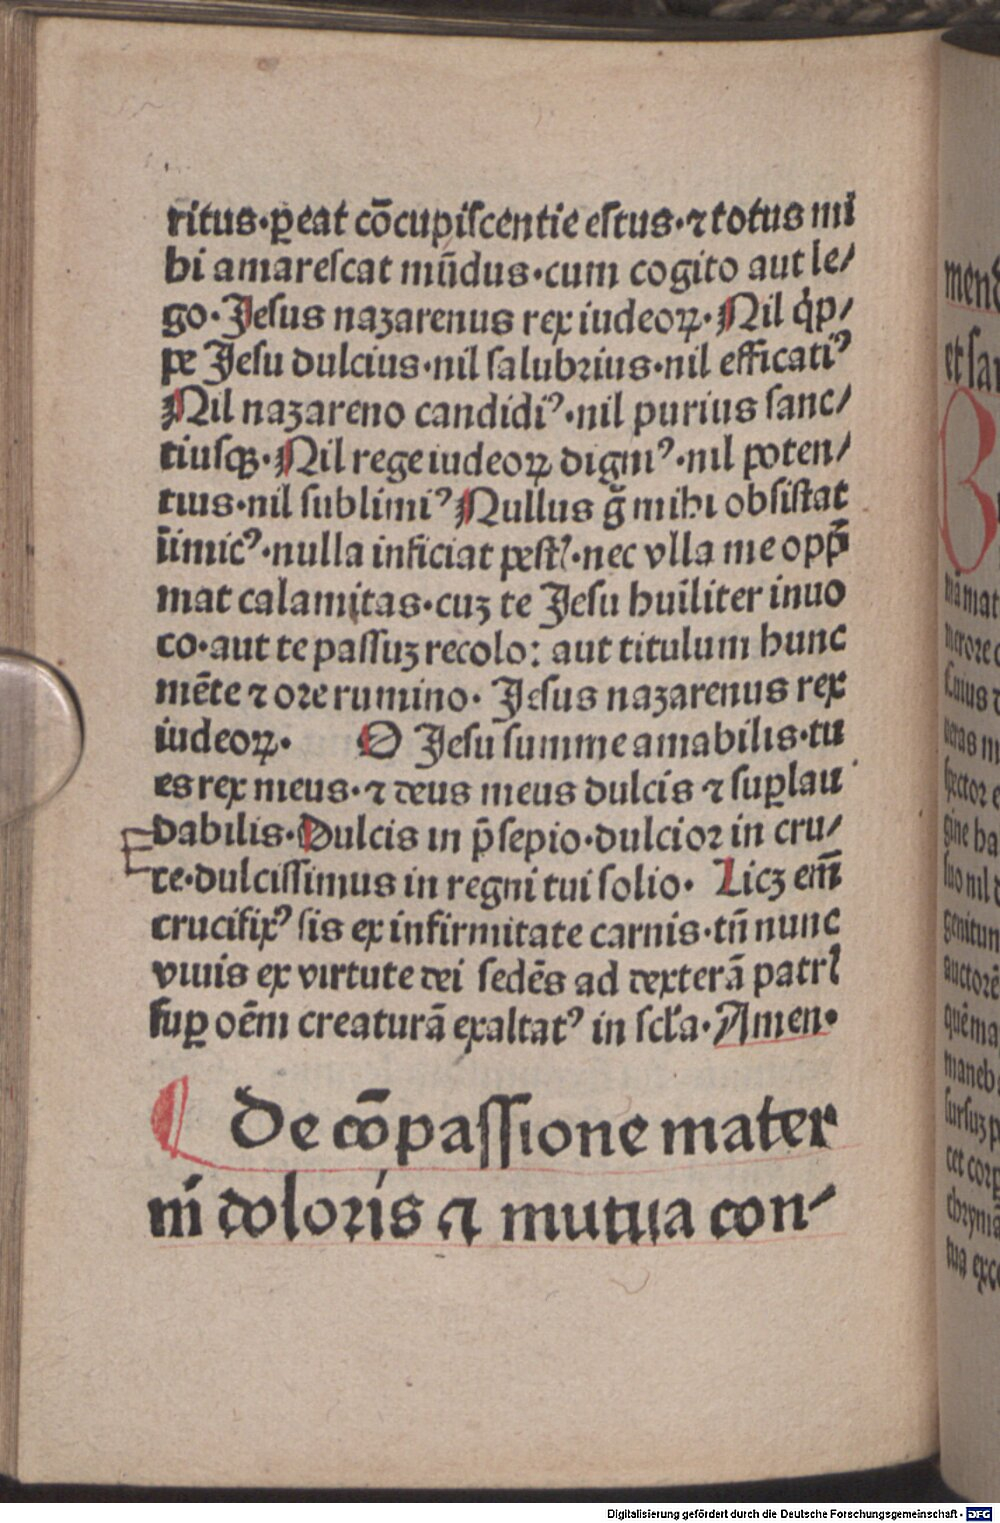 ritus·ꝑeat cōcupiſcentie eſtus·⁊ totus mi
hi amareſcat mūdus·cum cogito aut le/
go·Jeſus nazarenus rex iudeoꝝ·Nil q̇p/
pe Jeſu dulcius·nil ſalubrius·nil efficatiꝰ
Nil nazareno candidiꝰ·nil purius ſanc/
tiuſqꝫ·Nil rege iudeoꝝ digniꝰ·nil poten/
tius·nil ſublimiꝰ Nullus g̃ mihi obſiſtat
īimicꝰ·nulla inficiat peſtꝭ·nec vlla me opp̄
mat calamitas·cuꝫ te Jeſu huīliter inuo
co·aut te paſſuꝫ recolo: aut titulum hunc
mēte ⁊ ore rumino· Jeſus nazarenus rex
iudeoꝝ· O Jeſu ſumme amabilis·tu
es rex meus·⁊ deus meus dulcis ⁊ ſuꝑlau
dabilis·Dulcis in p̄ſepio·dulcior in cru/
ce·dulciſſimus in regni tui ſolio· Licꝫ em̄
crucifixꝰ ſis ex infirmitate carnis·tn̄ nunc
viuis ex virtute dei ſedēs ad dexterā patrꝭ
ſuꝑ oēm creaturā exaltatꝰ in ſcl̄a·Amen·
De cōpaſſione mater
ni doloris ⁊ mutua con-
mend
et ſa
B
Digitalisierung gefördert durch die Deutsche Forschungsgemeinschaft - DFG